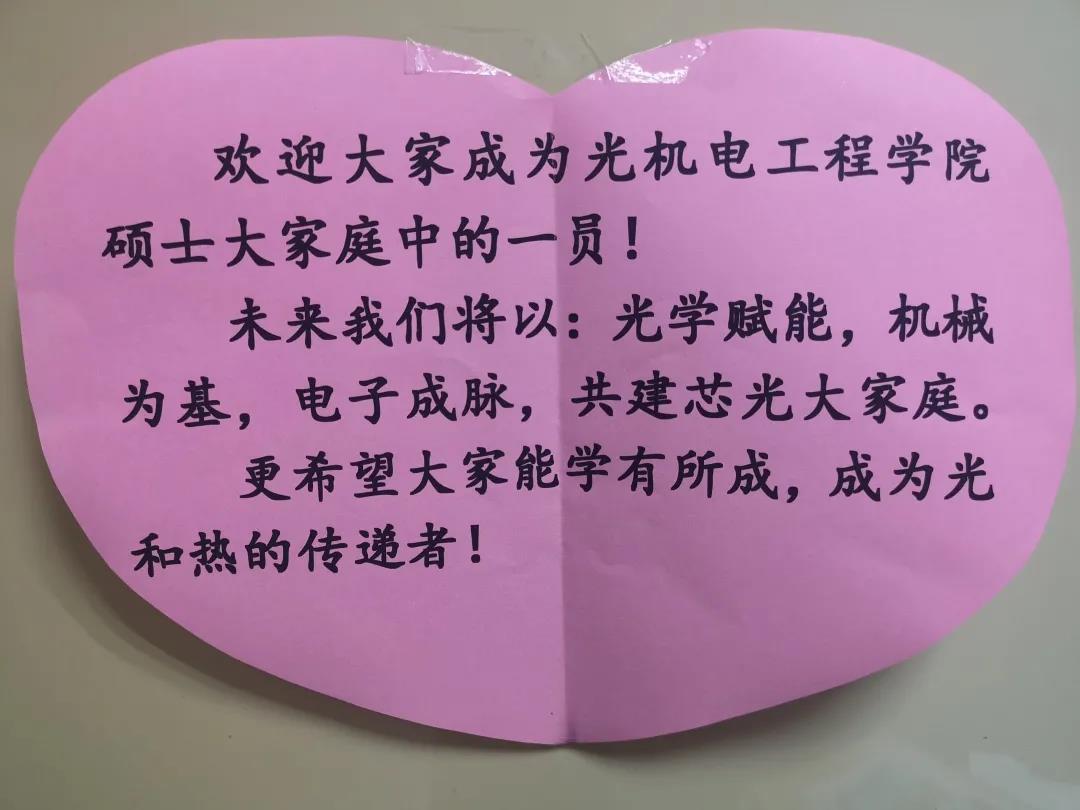 欢迎大家成为光机电工程学院
硕士大家庭中的一员！
未来我们将以：光学赋能，机械
为基，电子成脉，共建芯光大家庭。
更希望大家能学有所成，成为光
和热的传递者！